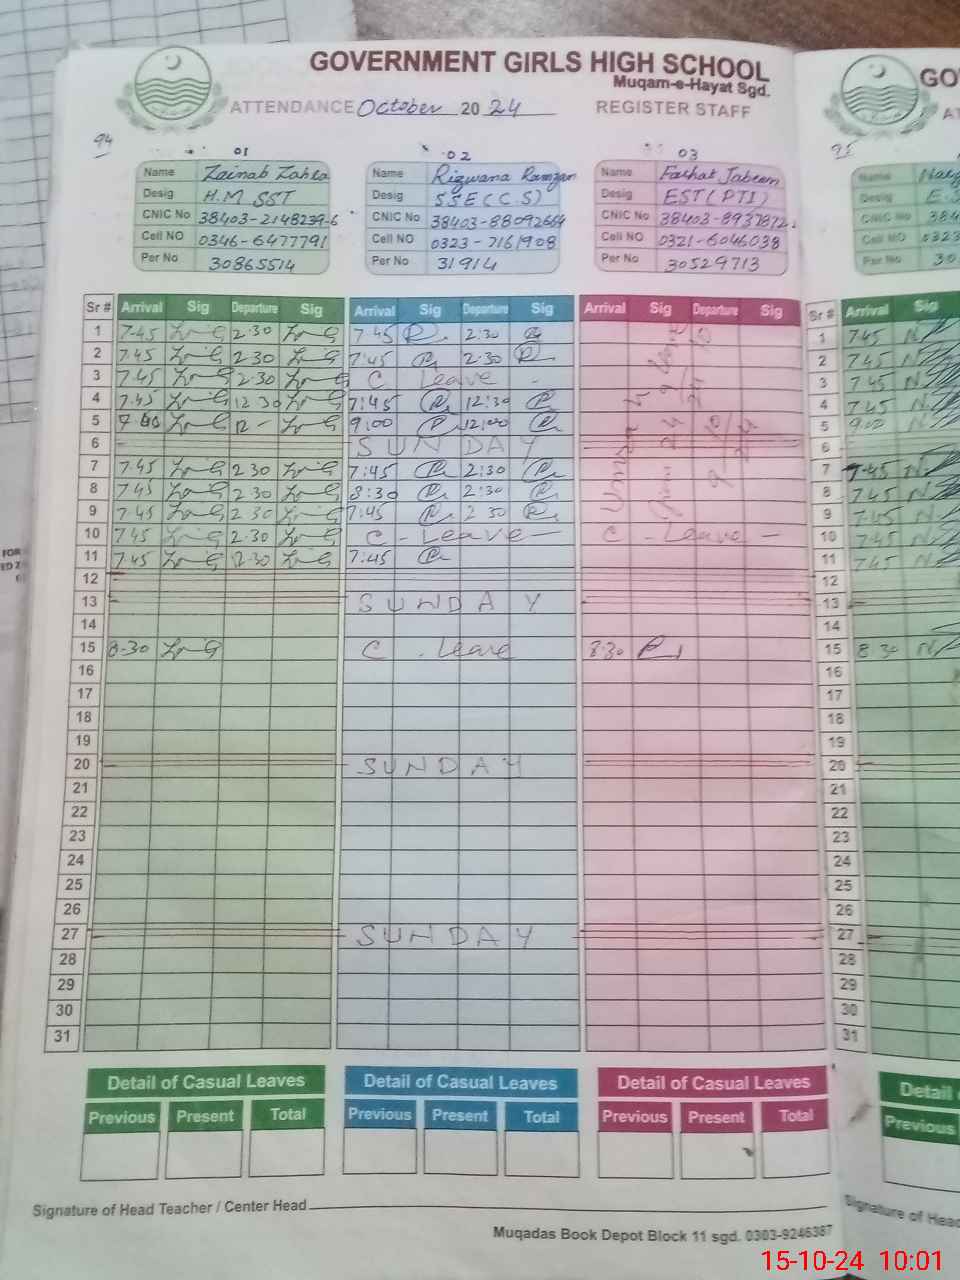 GOVERNMENT GIRLS HIGH SCHOOL
Muqam-e-Hayat Sgd.
ATTENDANCE October 2024 REGISTER STAFF
94
01
Name Zainab Zahra
Desig H.M SST
CNIC No 38403-2148239-6
Cell NO 0346-6477791
Per No 30865514
02
Name Rizwana Ramzan
Desig SSE(C.S)
CNIC No 38403-88092664
Cell NO 0323-7161908
Per No 31914
03
Name Farhat Jabeen
Desig EST(PTI)
CNIC No 38403-8937872
Cell NO 0321-6046038
Per No 30529713
Sr # Arrival Sig Departure Sig Arrival Sig Departure Sig Arrival Sig Departure Sig
1 7-45 2.30 7 45 2:30
2 7.45 2 30 7:45 2.30
3 7.45 2.30 C Leave
4 7.45 12 30 7:45 12:30
5 12 9:00 12:00
6 SUNDAY
7 7.45 2 30 7:45 2:30
8 7.45 2 30 8:30 2:30
9 7.45 2 30 7:45 2 30
10 7.45 2.30 C - Leave - C - Leave -
11 7.45 2.30 7:45
12
13 SUNDAY
14
15 8-30 C . Leave 8.30
16
17
18
19
20 SUNDAY
21
22
23
24
25
26
27 SUNDAY
28
29
30
31
Detail of Casual Leaves Detail of Casual Leaves Detail of Casual Leaves
Previous Present Total Previous Present Total Previous Present Total
Signature of Head Teacher / Center Head
Muqadas Book Depot Block 11 sgd. 0303-9246387
95
GO
Name
Desig
CNIC No 384
Cell NO 0323
Per No 30
Sr # Arrival Sig
1 7.45
2 7.45
3 7.45
4 7.45
5 9.00
6
7 7.45
8 7.45
9 7.45
10 7.45
11 7.45
12
13
14
15 8 30
16
17
18
19
20
21
22
23
24
25
26
27
28
29
30
31
Detail
Previous
Signature of Head
15-10-24 10:01